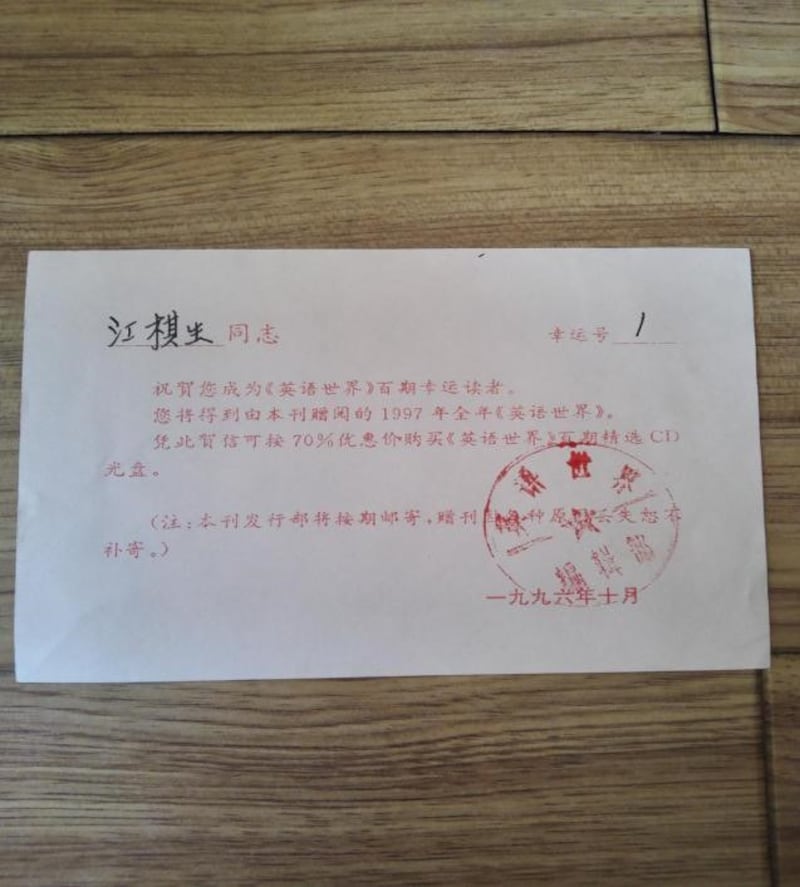 江棋生同志 幸运号 1
祝贺您成为《英语世界》百期幸运读者。
您将得到由本刊赠阅的1997年全年《英语世界》。
凭此贺信可按70%优惠价购买《英语世界》百期精选CD
光盘。
(注:本刊发行部将按期邮寄,赠刊 种原 丢失恕不
补寄。)
英语世界
编辑部
一九九六年十月